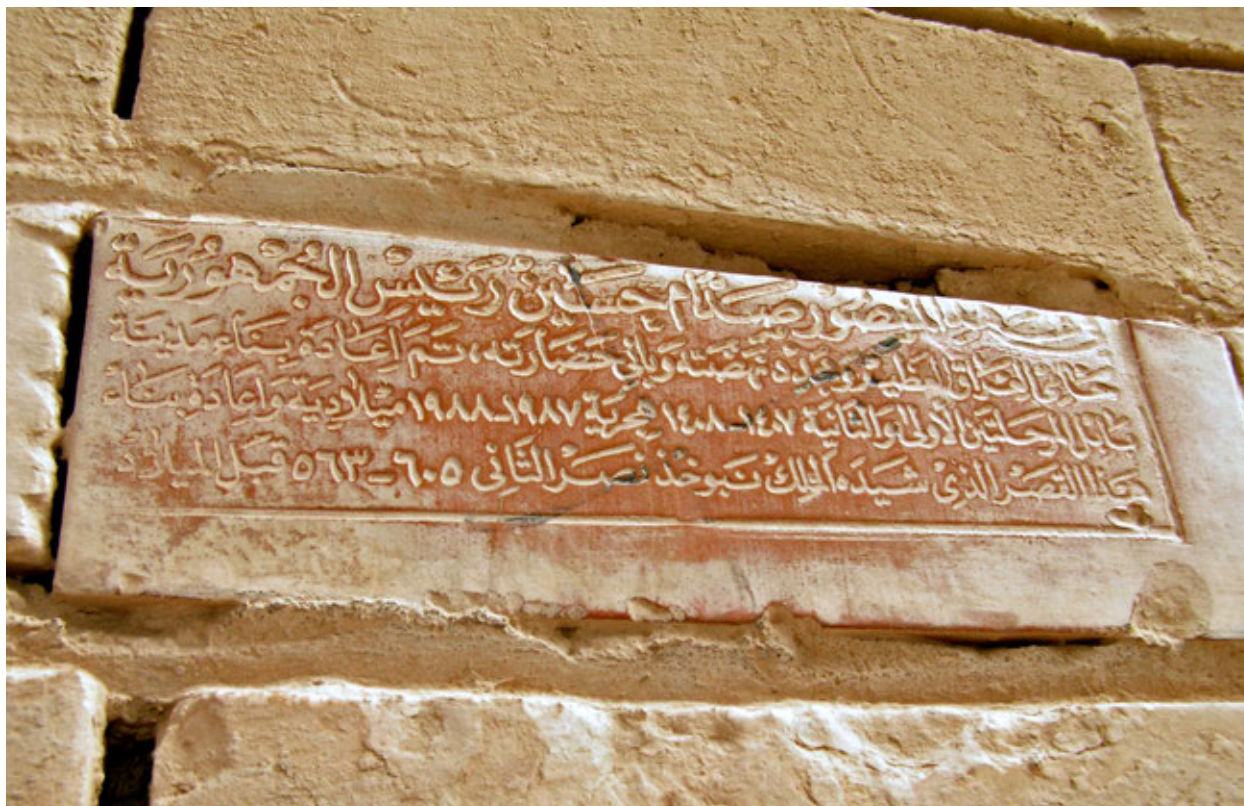 المنصور صدام حسين رئيس الجمهورية
العراق العظيم ومجدد نهضته وباني حضارته، تم إعادة بناء مدينة
بابل المرحلتين الأولى والثانية ١٤٠٧-١٤٠٨ هجرية ١٩٨٧-١٩٨٨ ميلادية وإعادة بناء
هذا القصر الذي شيده الملك نبوخذ نصر الثاني ٦٠٥-٥٦٣ قبل الميلاد